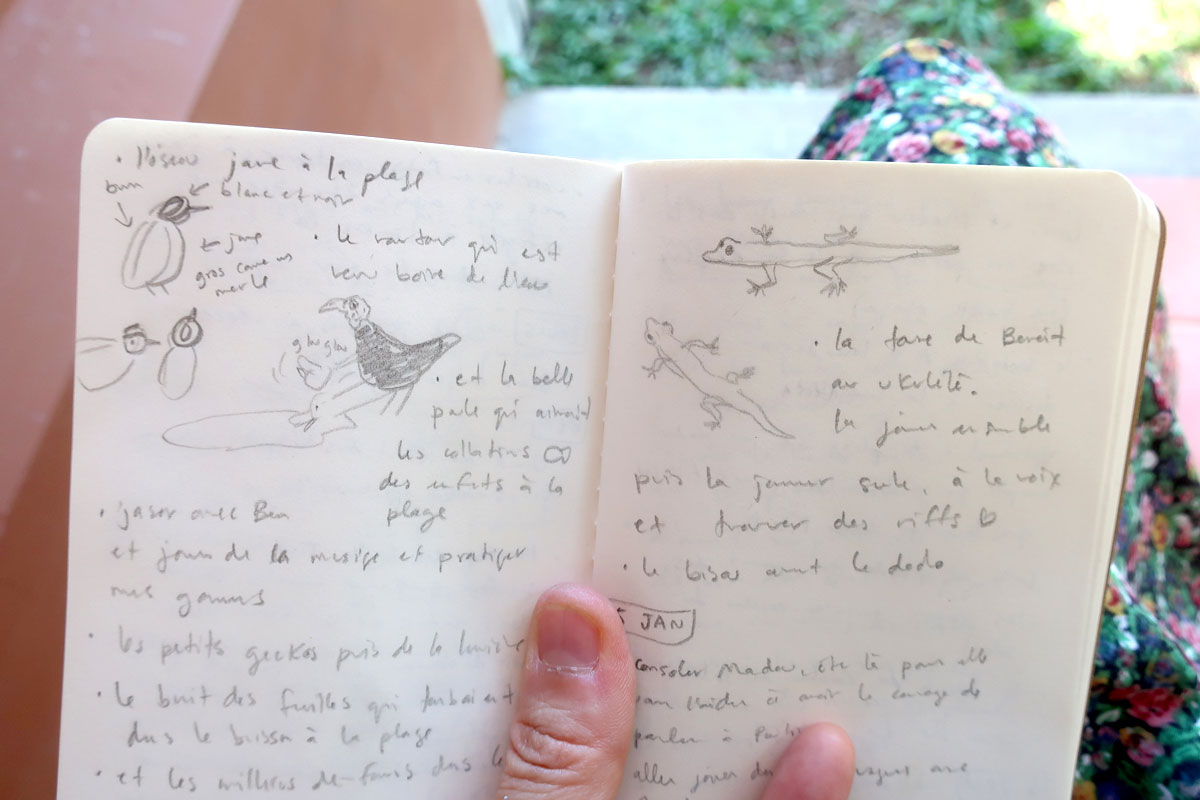 • l'oiseau jaune à la plage
brun
blanc et noir
← jaune
gros comme un
merle
• le vautour qui est
venu boire de l'eau
glou glou
• et la belle
qui aimait
les
des enfants à la
plage
• jaser avec Ben
et jouer de la musique et pratiquer
mes gammes
• les petits geckos près de la lumière
• le bruit des feuilles qui tombaient
dans le buisson à la plage
• et les milliers de dans
• la de Benoit
au ukulélé.
la jouer ensemble
puis la jammer seule, à la voix
et trouver des riffs
• le bisou avant le dodo
5 JAN
consoler Madou, être là pour elle
à avoir le courage de
parler à
aller jouer